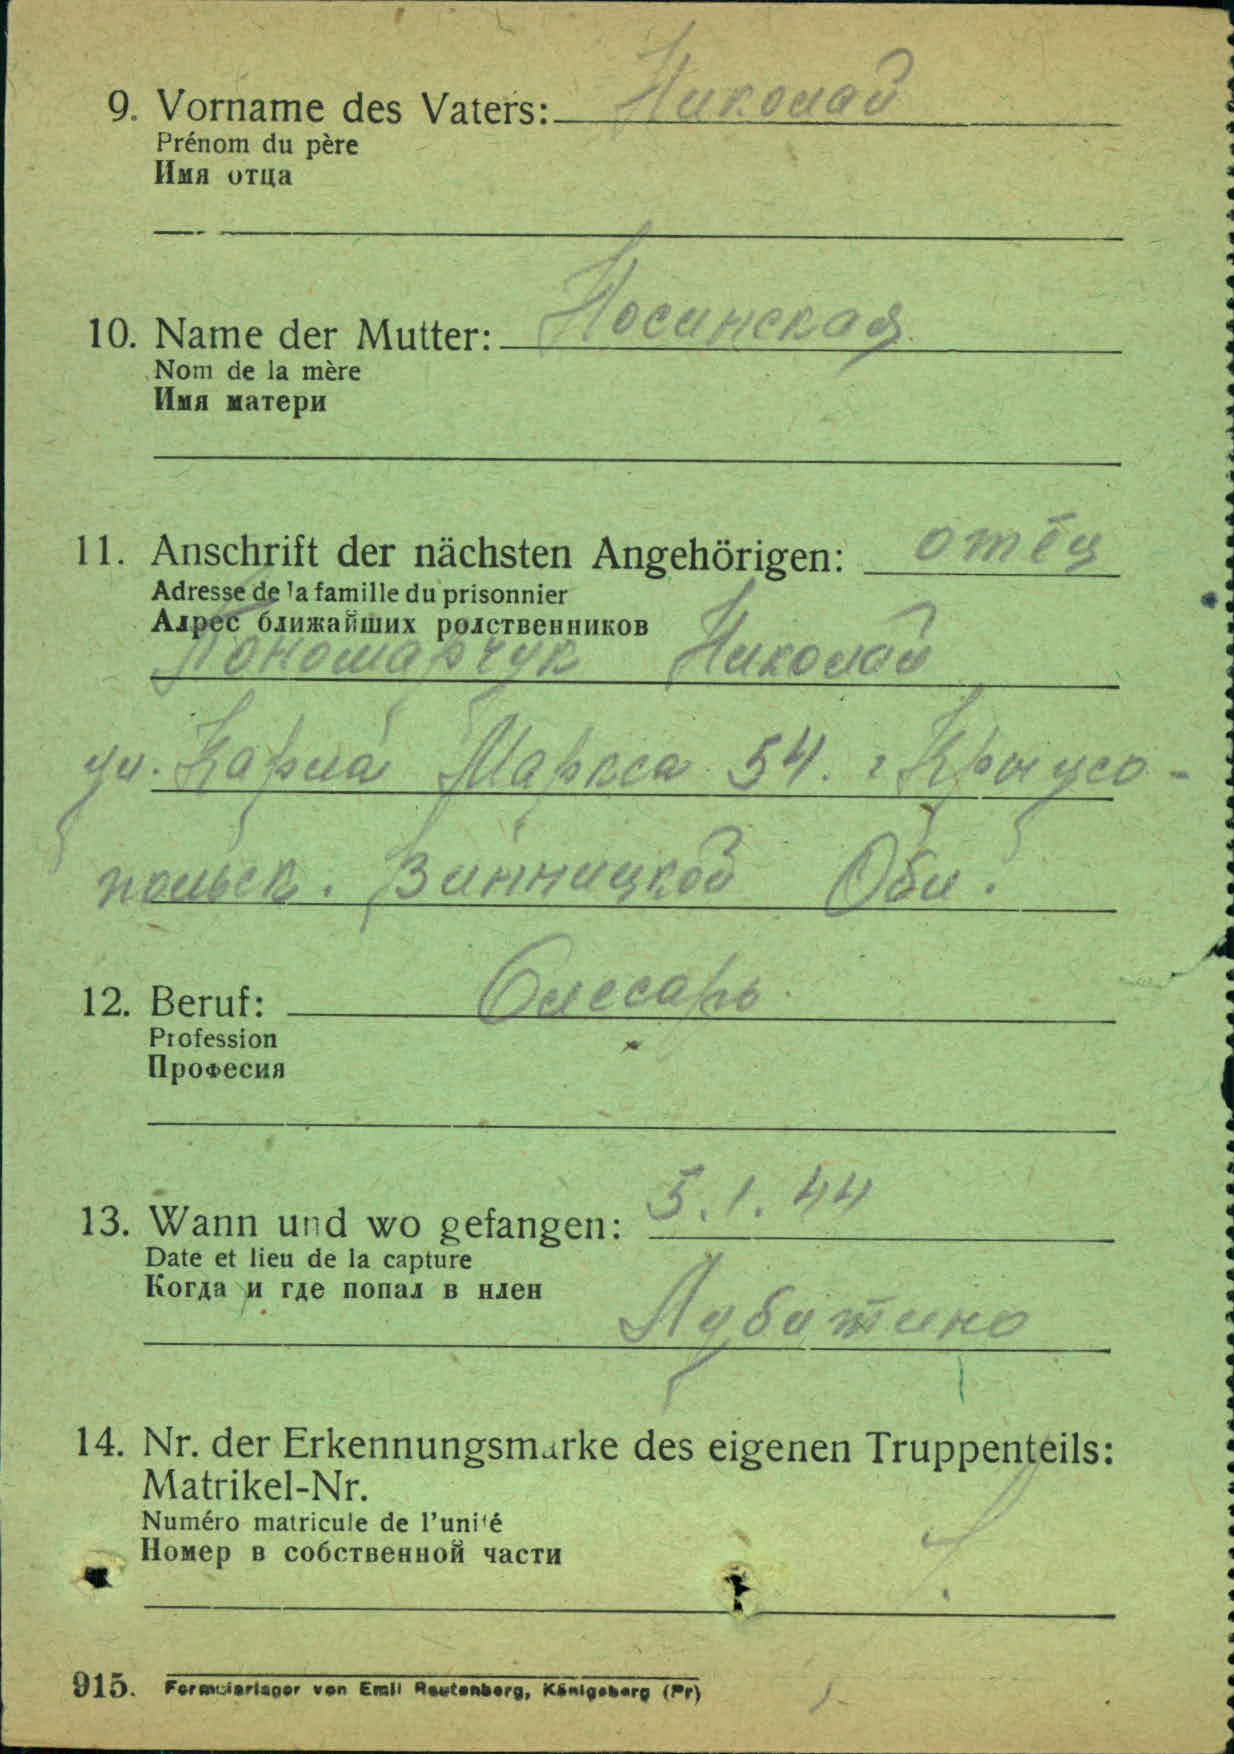 9. Vorname des Vaters: Николай
Prénom du père
Имя отца
10. Name der Mutter: Носинская
Nom de la mère
Имя матери
11. Anschrift der nächsten Angehörigen: отец
Adresse de la famille du prisonnier
Адрес ближайших родственников
Пономарчук Николай
ул. Карла Маркса 54. г Крыжо-
польск. Винницкой Обл.
12. Beruf: Слесарь
Profession
Професия
13. Wann und wo gefangen: 5.1.44
Date et lieu de la capture
Когда и где попал в нлен
14. Nr. der Erkennungsmarke des eigenen Truppenteils:
Matrikel-Nr.
Numéro matricule de l'unité
Номер в собственной части
915. Formularlager von Emil Rautenberg, Königsberg (Pr)